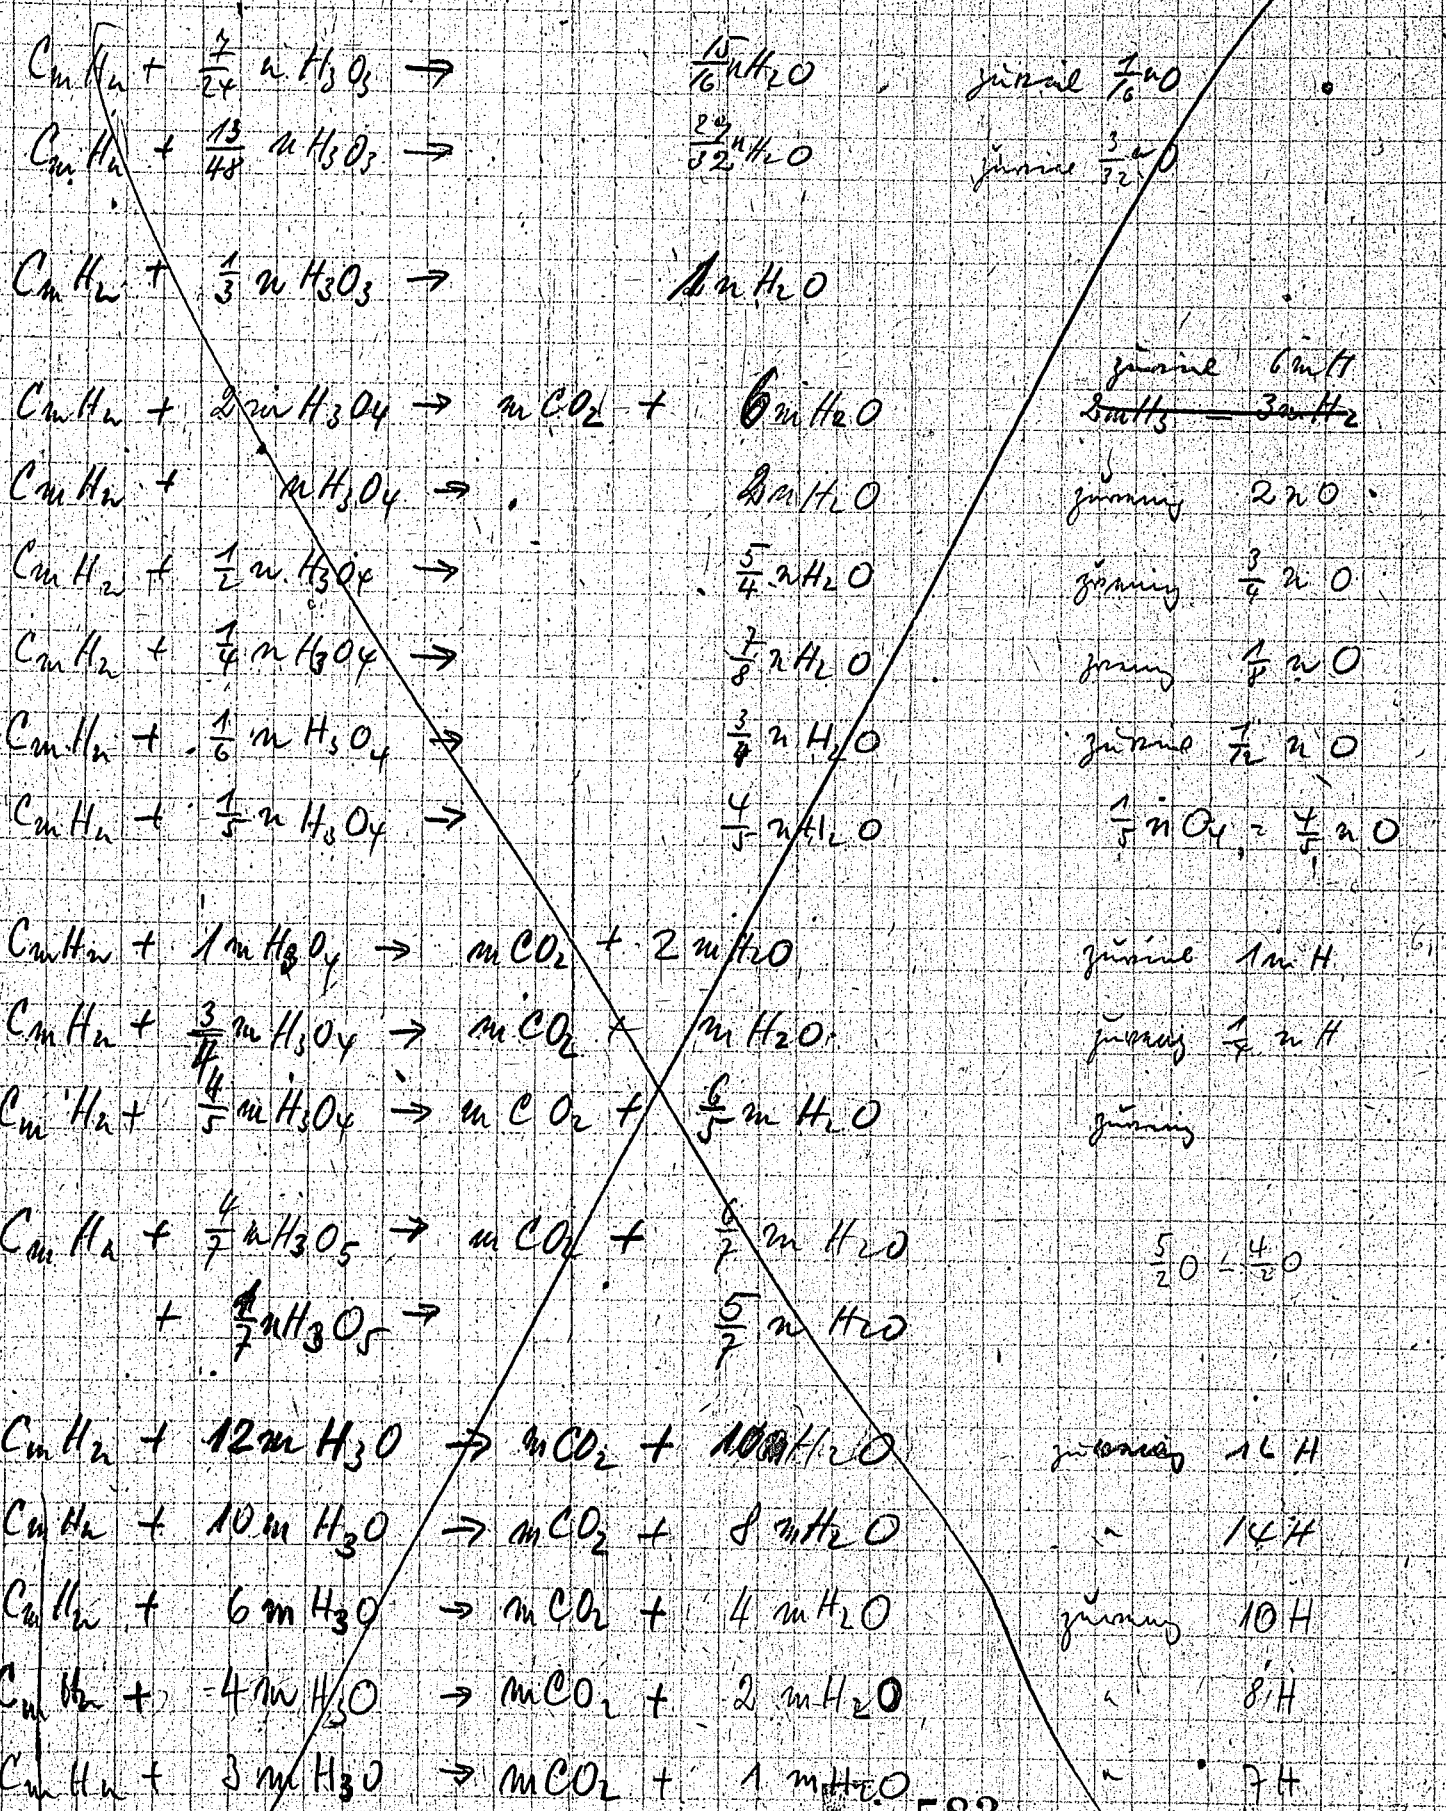 CmHn + 7/24 n H3O3 → 15/16 nH2O zuviel 1/16 nO
CmHn + 13/48 n H3O3 → 29/32 nH2O zuviel 3/32 nO
CmHn + 1/3 n H3O3 → 1 n H2O
zuviel 6mH
CmHn + 2m H3O4 → mCO2 + 6mH2O 2mH3 = 3mH2
CmHn + nH3O4 → 2nH2O zuwenig 2nO
CmHn + 1/2 n H3O4 → 5/4 nH2O zuwenig 3/4 n O
CmHn + 1/4 n H3O4 → 7/8 nH2O zuwenig 1/8 n O
CmHn + 1/6 n H3O4 → 3/4 n H2O zuviel 1/12 n O
CmHn + 1/5 n H3O4 → 4/5 nH2O 1/5 nO4 = 4/5 n O
CmHn + 1mH3O4 → mCO2 + 2mH2O zuviel 1mH
CmHn + 3/4 mH3O4 → mCO2 + mH2O zuwenig 1/4 n H
CmHn + 4/5 mH3O4 → mCO2 + 6/5 m H2O zuwenig
CmHn + 4/7 nH3O5 → mCO2 + 6/7 m H2O 5/2 O = 4/2 O
+ 1/7 nH3O5 → 5/7 n H2O
CmHn + 12mH3O → mCO2 + 10mH2O zuwenig 16 H
CmHn + 10mH3O → mCO2 + 8mH2O " 14H
CmHn + 6mH3O → mCO2 + 4 mH2O zuwenig 10H
CmHn + 4mH3O → mCO2 + 2 mH2O " 8H
CmHn + 3mH3O → mCO2 + 1 mH2O " 7H
583